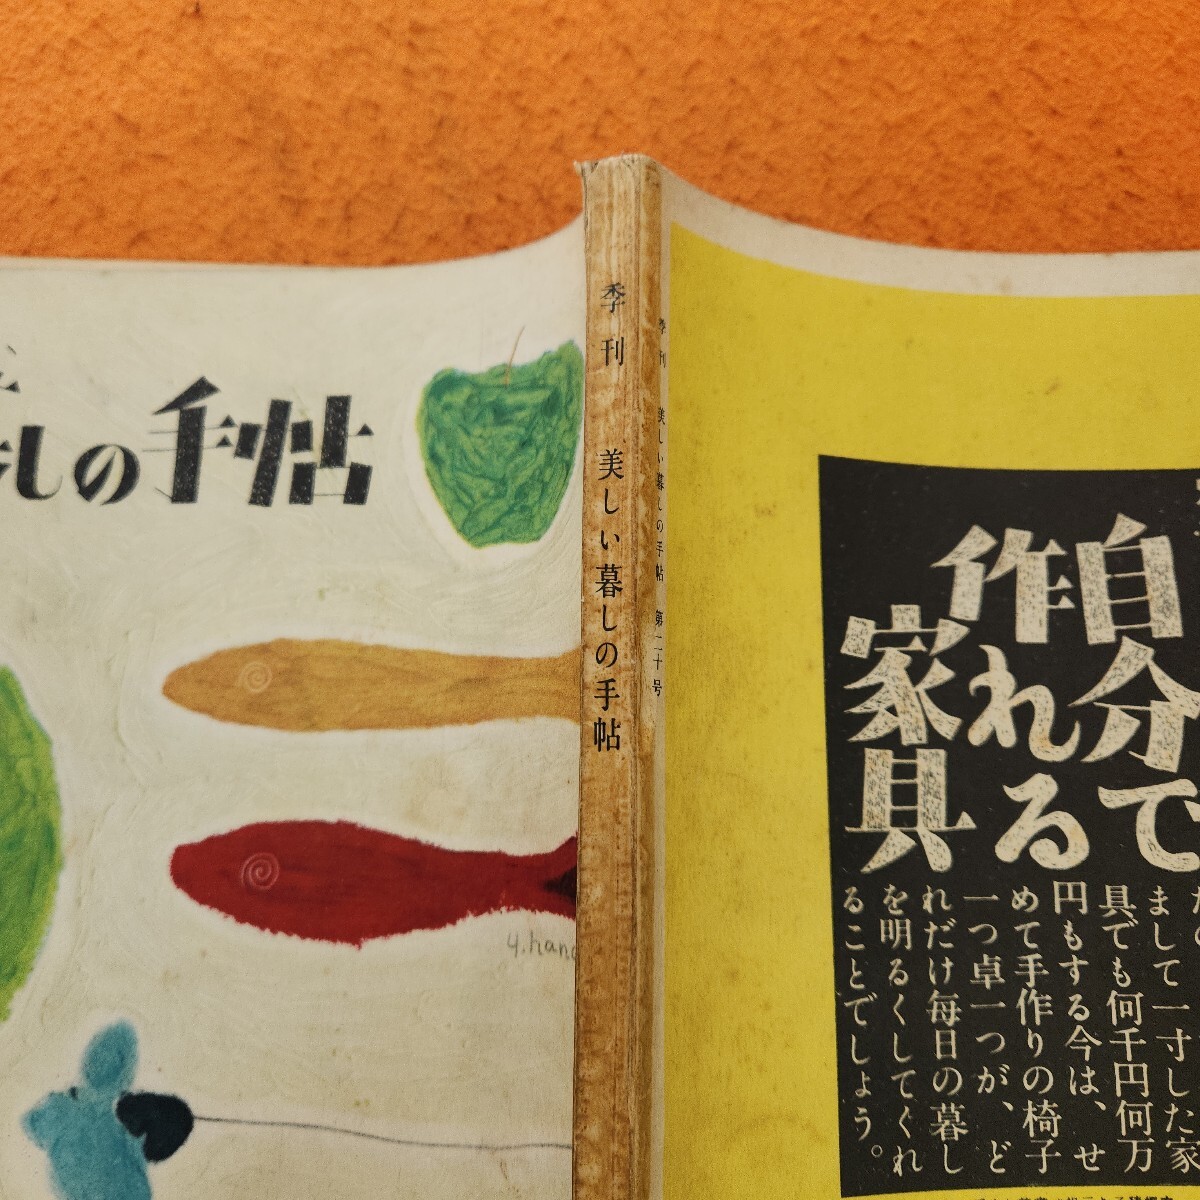 しの手帖
y.hana
季刊 美しい暮しの手帖
季刊 美しい暮しの手帖 第二十号
自分で
作れる
家具
まして一寸した家
具でも何千円何万
円もする今は、せ
めて手作りの椅子
一つ卓一つが、ど
れだけ毎日の暮し
を明るくしてくれ
ることでしょう。